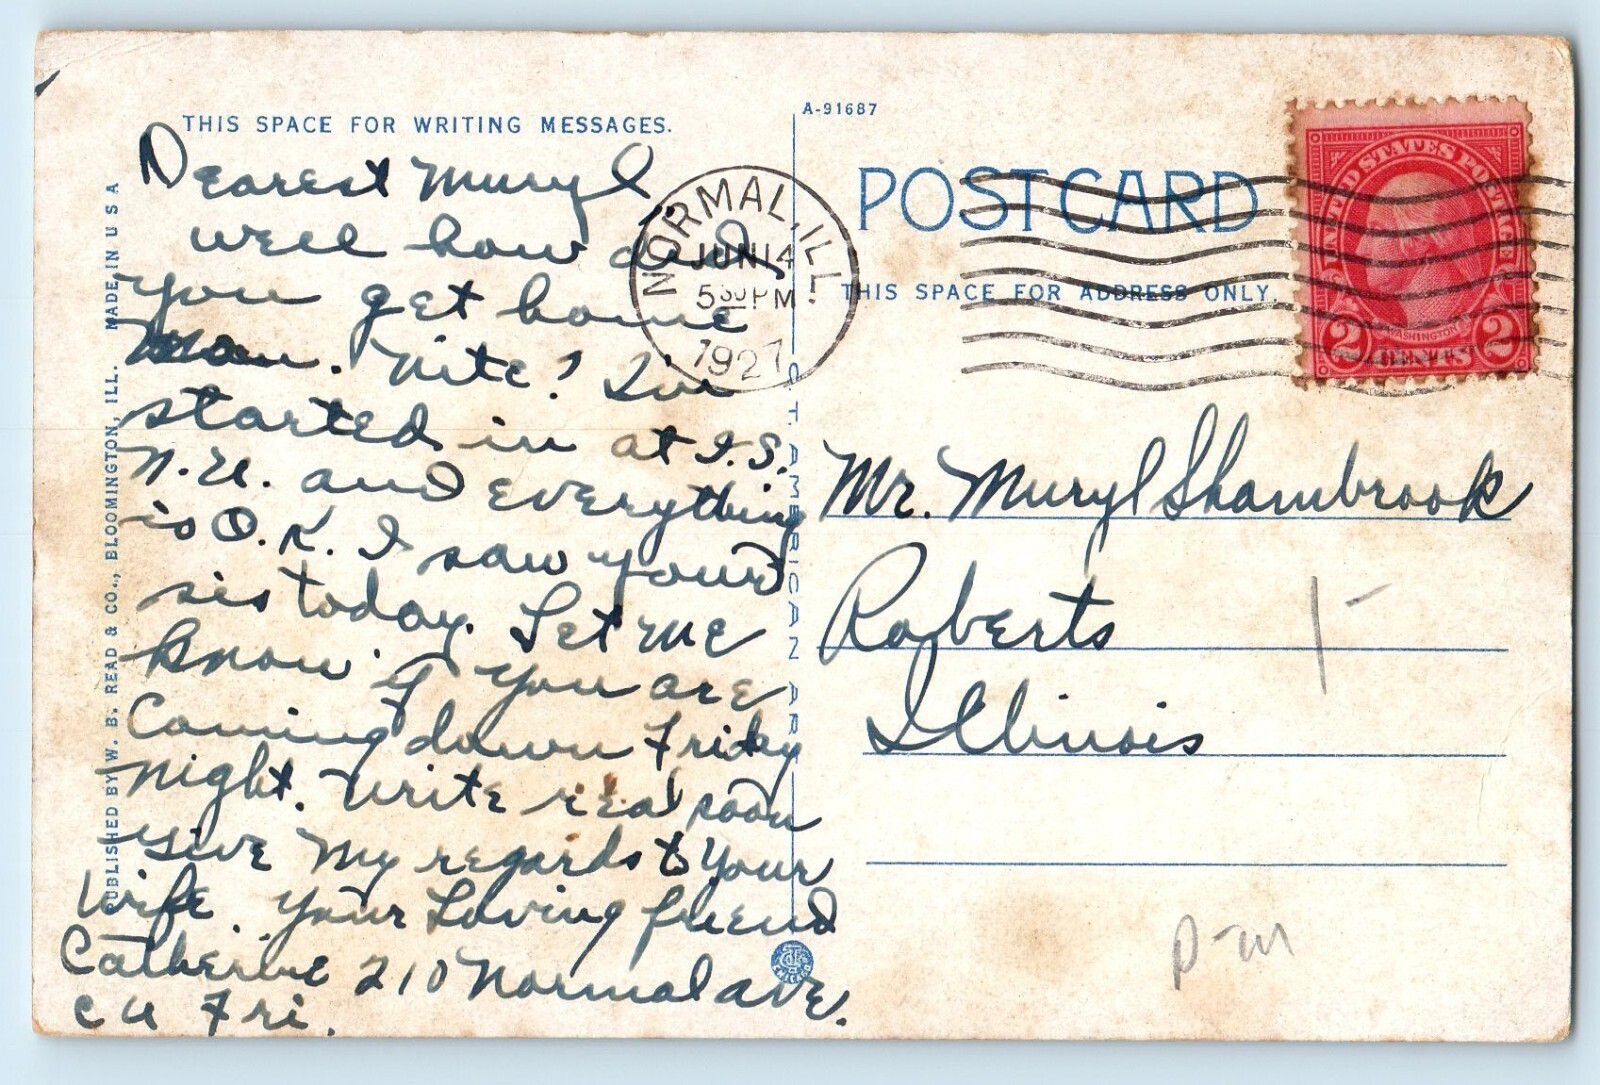 THIS SPACE FOR WRITING MESSAGES.
Dearest Muryl
well how did
you get home
Mon. Nite? I'm
started in at I.S.
N.U. and everything
is O.K. I saw your
sis today. Let me
know if you are
coming down Friday
night. Write real soon
Give my regards to your
Wife. Your Loving friend
Catherine 210 Normal ave.
C U Fri.
PUBLISHED BY W. B. READ & CO., BLOOMINGTON, ILL. MADE IN U S A
C. T. AMERICAN ART
CHICAGO
A-91687
POST CARD
THIS SPACE FOR ADDRESS ONLY.
NORMAL, ILL.
JUN 14
5 30 PM
1927
UNITED STATES POSTAGE
WASHINGTON
2 CENTS 2
Mr. Muryl Shambrook
Roberts
Illinois
1-
P-m